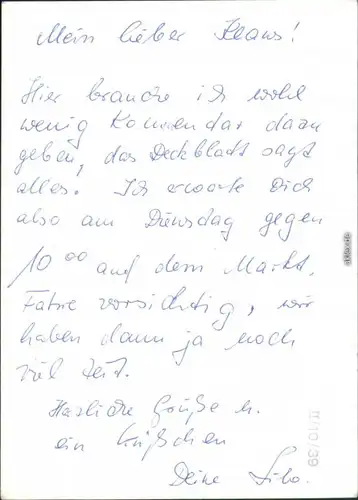 Mein lieber Klaus!
Hier brauche ich wohl
wenig Kommentar dazu
geben, das Deckblatt sagt
alles. Ich erwarte Dich
also am Dienstag gegen
10 00 auf dem Markt.
Fahre vorsichtig, wir
haben dann ja noch
viel Zeit.
Herzliche Grüße u.
ein Küßchen
Deine
II/10/39